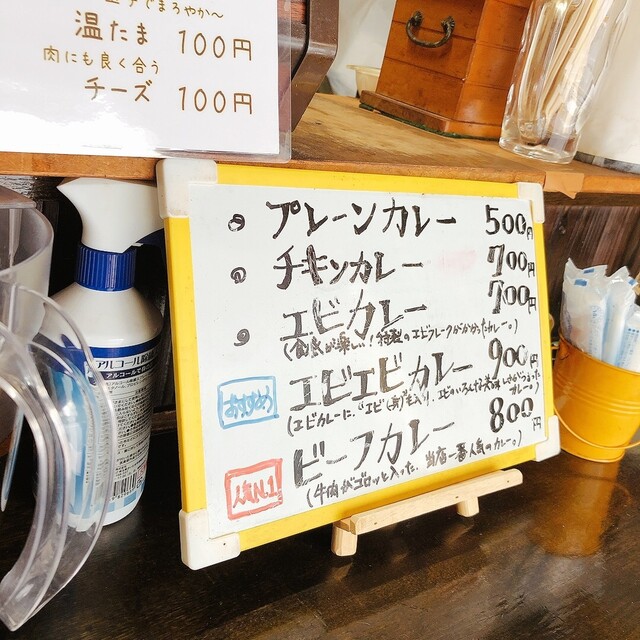 でまろやか〜
温たま 100円
肉にも良く合う
チーズ 100円
プレーンカレー 500円
チキンカレー 700円
エビカレー 700円
(食感が楽しい!特製のエビフレークがかかったカレー。)
おすすめ
エビエビカレー 900円
(エビカレーに、"エビ
ビーフカレー 800円
人気N.1
(牛肉がゴロッと入った、当店一番人気のカレー。)
アルコール
アルコールで